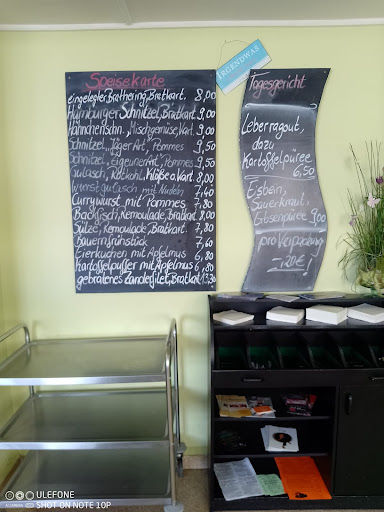 Speisekarte
eingelegter Brathering, Bratkart. 8,00
Hamburger Schnitzel, Bratkart. 9,00
Hähnchenschn., Mischgemüse, Kart. 9,00
Schnitzel, "Jäger Art", Pommes 9,50
Schnitzel, Zigeuner Art, Pommes 9,50
Gulasch, Rotkohl, Klöße o. Kart. 8,00
Wurstgulasch mit Nudeln 7,40
Currywurst mit Pommes 7,80
Backfisch, Remoulade, Bratkart. 8,00
Sülze, Remoulade, Bratkart. 7,80
Bauernfrühstück 7,60
Eierkuchen mit Apfelmus 6,80
Kartoffelpuffer mit Apfelmus 6,80
gebratenes Zanderfilet, Bratkart. 13,30
IRGENDWAS
Tagesgericht
Leberragout,
dazu
Kartoffelpüree
6,50
Eisbein,
Sauerkraut,
Erbsenpüree 9,00
pro Verpackung
-,20€!
ULEFONE
SHOT ON NOTE 10P